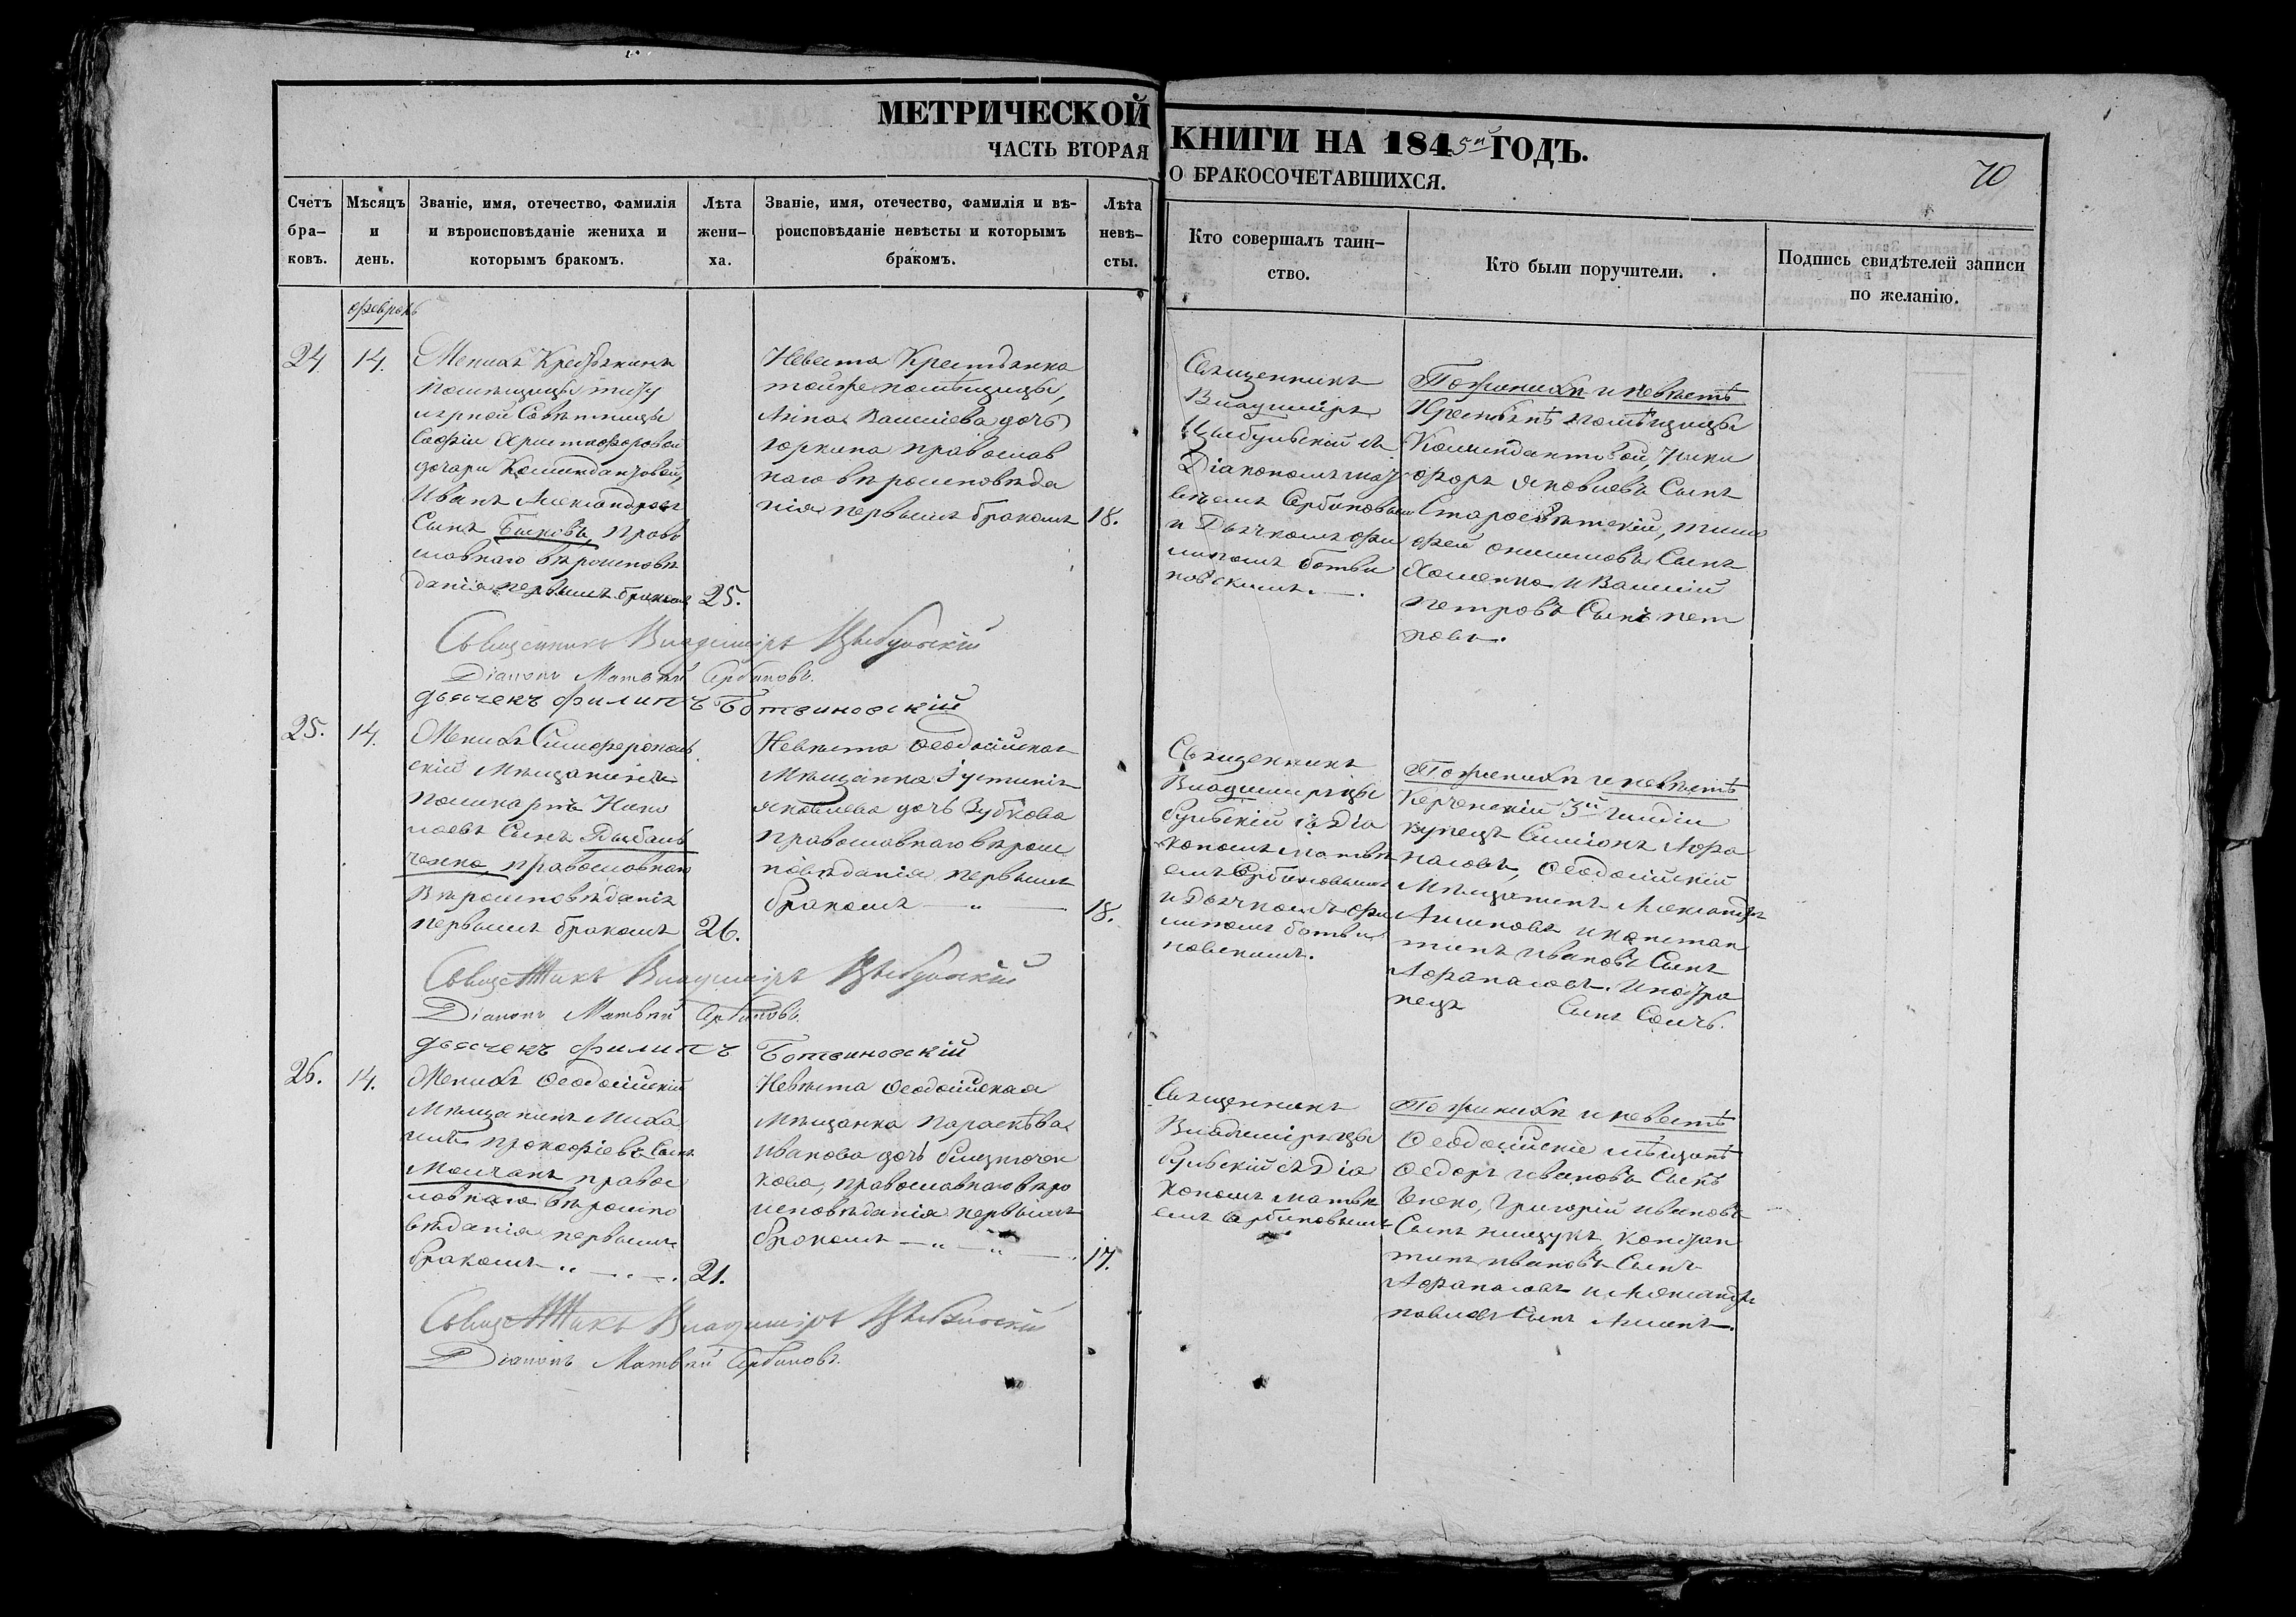 МЕТРИЧЕСКОЙ
ЧАСТЬ ВТОРАЯ
КНИГИ НА 1845й ГОДЪ.
О БРАКОСОЧЕТАВШИХСЯ.
70
Счетъ бра-ковъ.
Мѣсяцъ и день.
Званіе, имя, отечество, фамилія и вѣроисповѣданіе жениха и которымъ бракомъ.
Лѣта жени-ха.
Званіе, имя, отечество, фамилія и вѣ-роисповѣданіе невѣсты и которымъ бракомъ.
Лѣта невѣ-сты.
Кто совершалъ таин-ство.
Кто были поручители.
Подпись свидѣтелей записи по желанію.
февраль
24
14.
Женихъ Крестьянинъ
помѣщицы титу
лярной Совѣтницы
Софіи Христофоровой
дочери
Иванъ Александровъ
Сынъ Быковъ, право
славнаго вѣроисповѣ
данія первымъ бракомъ
25.
Невеста Крестьянка
тойже помѣщицы,
Анна Василіева дочь
православ
наго вѣроисповѣда
нія первымъ бракомъ
18.
Священникъ
Владиміръ
Цыбульскій съ
Діакономъ Мат
веемъ Сербиновымъ
и Дьячкомъ Фи
липомъ Ботви
новскимъ.
По женихѣ и невѣстѣ
Крестьянѣ помѣщицы
Ники
форъ Яковлевъ Сынъ
Тимо
фей Онисимовъ Сынъ
Хоменко и Василій
Петровъ Сынъ Пет
ровъ.
Священникъ Владиміръ Цыбульскій
Діаконъ Матвѣй Сербиновъ.
дьячекъ Филипъ Ботвиновскій
25.
14.
Женихъ Симферополь
скій Мѣщанинъ
Поликарпъ Нико
лаевъ Сынъ Дыбаль
ченко, православнаго
Вѣроисповѣданія
первымъ бракомъ
26.
Невѣста Ѳеодосійская
Мѣщанка Іустинія
Яковлева дочь Зубкова
православнаго вѣроис
повѣданія первымъ
бракомъ — „ —
18.
Священникъ
Владиміръ Цы
бульскій съ Діа
кономъ Матвѣ
емъ Сербиновымъ
и Дьячкомъ Фи
липомъ Ботви
новскимъ.
По женихѣ и невѣстѣ
Керченскій 3й Гильдіи
купецъ Симіонъ Афа
насовъ, Ѳеодосійскій
Мѣщанинъ Александръ
и Констан
тинъ Ивановъ Сынъ
Афанасовъ. Иностра
нецъ Сынъ
Священникъ Владиміръ Цыбульскій
Діаконъ Матвѣй Сербиновъ.
дьячекъ Филипъ Ботвиновскій
26.
14.
Женихъ Ѳеодосійскій
Мѣщанинъ Миха
илъ Прокофіевъ Сынъ
Молчанъ правос
лавнаго вѣроиспо
вѣданія первымъ
бракомъ „ — „ —.
21.
Невѣста Ѳеодосійская
Мѣщанка Параскѣва
Иванова дочь Близнючен
кова, православнаго вѣро
исповѣданія первымъ
бракомъ — „ — „ —
17.
Священникъ
Владиміръ Цы
бульскій съ Діа
кономъ Матвѣ
емъ Сербиновымъ
По женихѣ и невестѣ
Ѳеодосійскіе мѣщанѣ
Ѳедоръ Ивановъ Сынъ
Григорій Ивановъ
Сынъ Констан
тинъ Ивановъ Сынъ
Афанасовъ и Александръ
Павловъ Сынъ
Священникъ Владиміръ Цыбульскій
Діаконъ Матвѣй Сербиновъ.